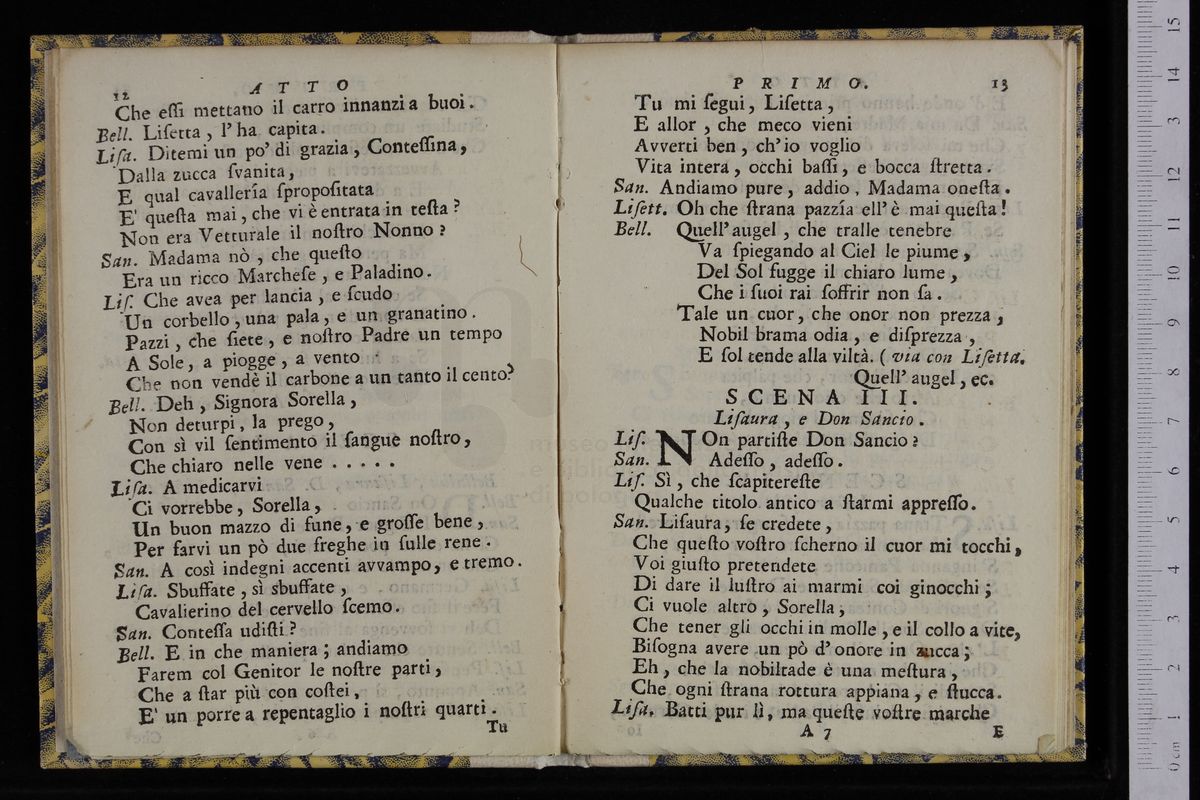 12 ATTO
Che eſſi mettano il carro innanzi a buoi.
Bell. Liſetta, l'ha capita.
Liſa. Ditemi un po' di grazia, Conteſſina,
Dalla zucca ſvanita,
E qual cavallería ſpropoſitata
E' queſta mai, che vi è entrata in teſta?
Non era Vetturale il noſtro Nonno?
San. Madama nò, che queſto
Era un ricco Marcheſe, e Paladino.
Liſ. Che avea per lancia, e ſcudo
Un corbello, una pala, e un granatino.
Pazzi, che ſiete, e noſtro Padre un tempo
A Sole, a piogge, a vento
Che non vendè il carbone a un tanto il cento?
Bell. Deh, Signora Sorella,
Non deturpi, la prego,
Con sì vil ſentimento il ſangue noſtro,
Che chiaro nelle vene . . . . .
Liſa. A medicarvi
Ci vorrebbe, Sorella,
Un buon mazzo di fune, e groſſe bene,
Per farvi un pò due freghe in ſulle rene.
San. A così indegni accenti avvampo, e tremo.
Liſa. Sbuffate, sì sbuffate,
Cavalierino del cervello ſcemo.
San. Conteſſa udiſti?
Bell. E in che maniera; andiamo
Farem col Genitor le noſtre parti,
Che a ſtar più con coſtei,
E' un porre a repentaglio i noſtri quarti.
Tu
PRIMO. 13
Tu mi ſegui, Liſetta,
E allor, che meco vieni
Avverti ben, ch'io voglio
Vita intera, occhi baſſi, e bocca ſtretta.
San. Andiamo pure, addio, Madama oneſta.
Liſett. Oh che ſtrana pazzía ell'è mai queſta!
Bell. Quell'augel, che tralle tenebre
Va ſpiegando al Ciel le piume,
Del Sol fugge il chiaro lume,
Che i ſuoi rai ſoffrir non ſa.
Tale un cuor, che onor non prezza,
Nobil brama odia, e diſprezza,
E ſol tende alla viltà. (via con Liſetta.
Quell'augel, ec.
SCENA III.
Liſaura, e Don Sancio.
Liſ. NOn partiſte Don Sancio?
San. Adeſſo, adeſſo.
Liſ. Sì, che ſcapitereſte
Qualche titolo antico a ſtarmi appreſſo.
San. Liſaura, ſe credete,
Che queſto voſtro ſcherno il cuor mi tocchi,
Voi giuſto pretendete
Di dare il luſtro ai marmi coi ginocchi;
Ci vuole altro, Sorella;
Che tener gli occhi in molle, e il collo a vite,
Biſogna avere un pò d'onore in zucca;
Eh, che la nobiltade è una meſtura,
Che ogni ſtrana rottura appiana, e ſtucca.
Liſa. Batti pur lì, ma queſte voſtre marche
A 7 E